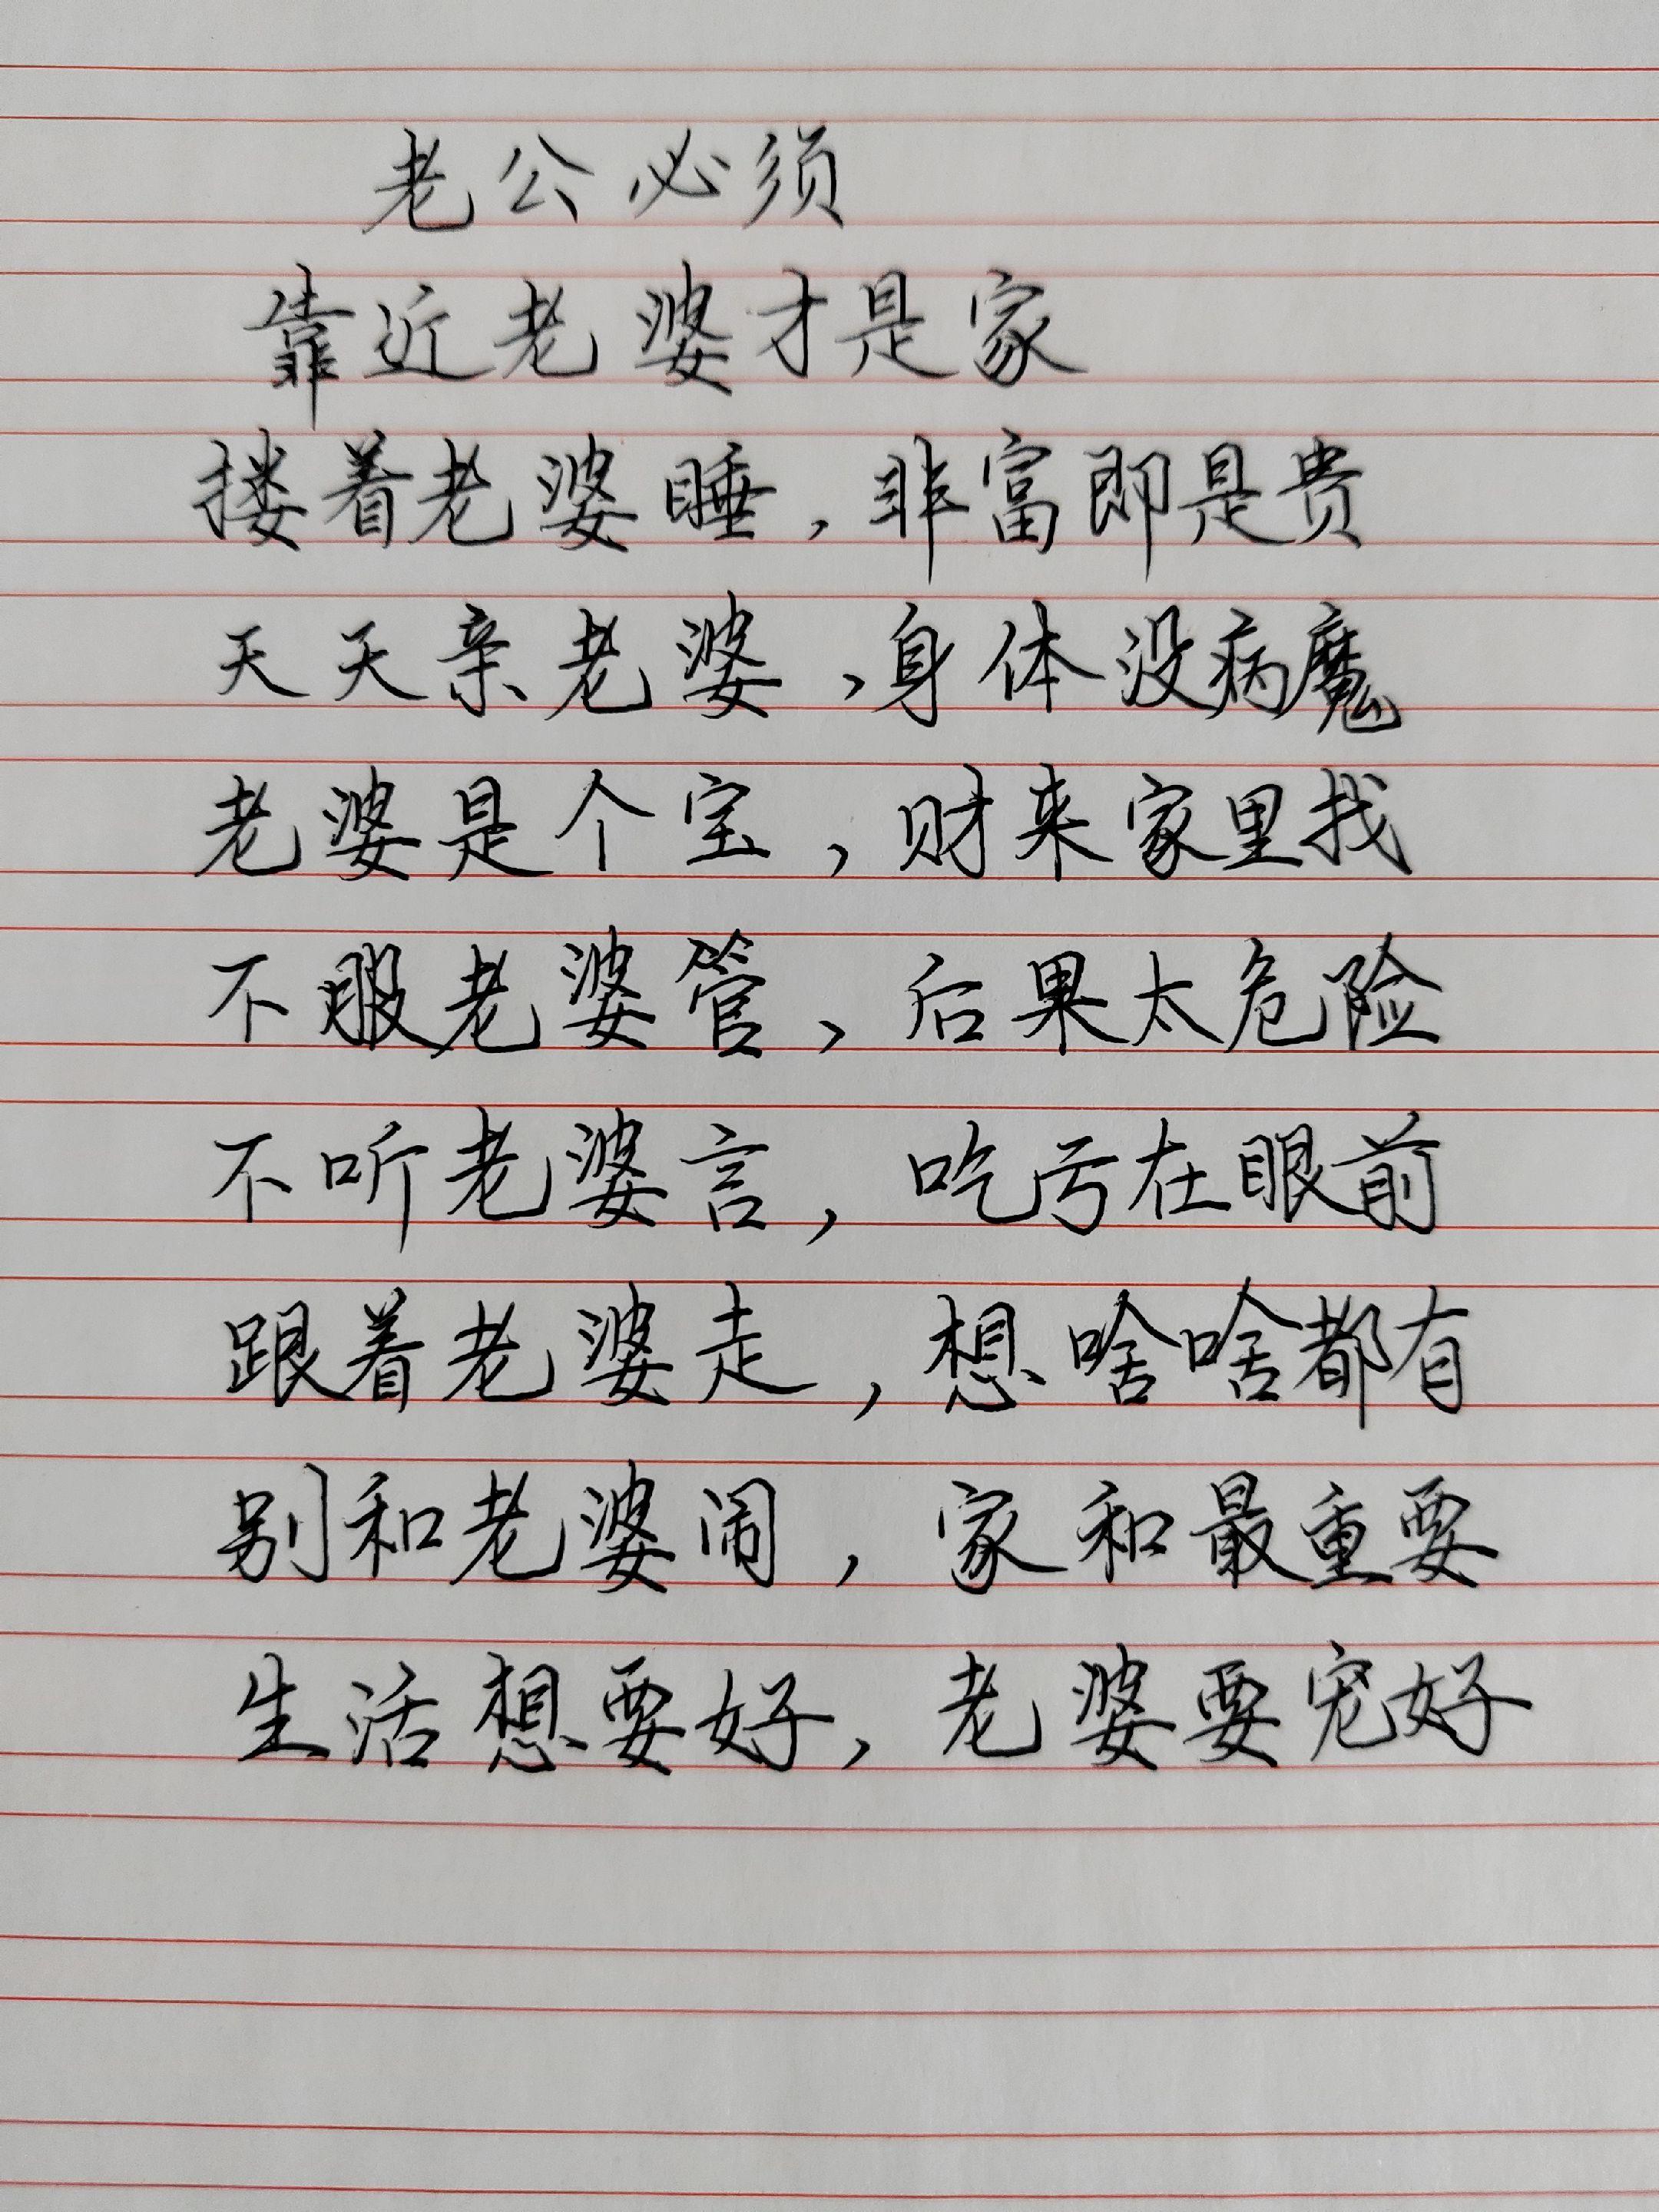 老公必须
靠近老婆才是家
搂着老婆睡，非富即是贵
天天亲老婆，身体没病魔
老婆是个宝，财来家里找
不服老婆管，后果太危险
不听老婆言，吃亏在眼前
跟着老婆走，想啥啥都有
别和老婆闹，家和最重要
生活想要好，老婆要宠好